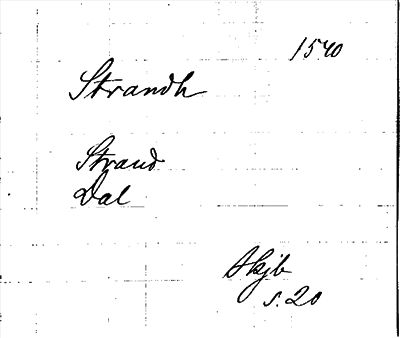 1540
Strandh
Strand
Dal
Skjb
s. 20